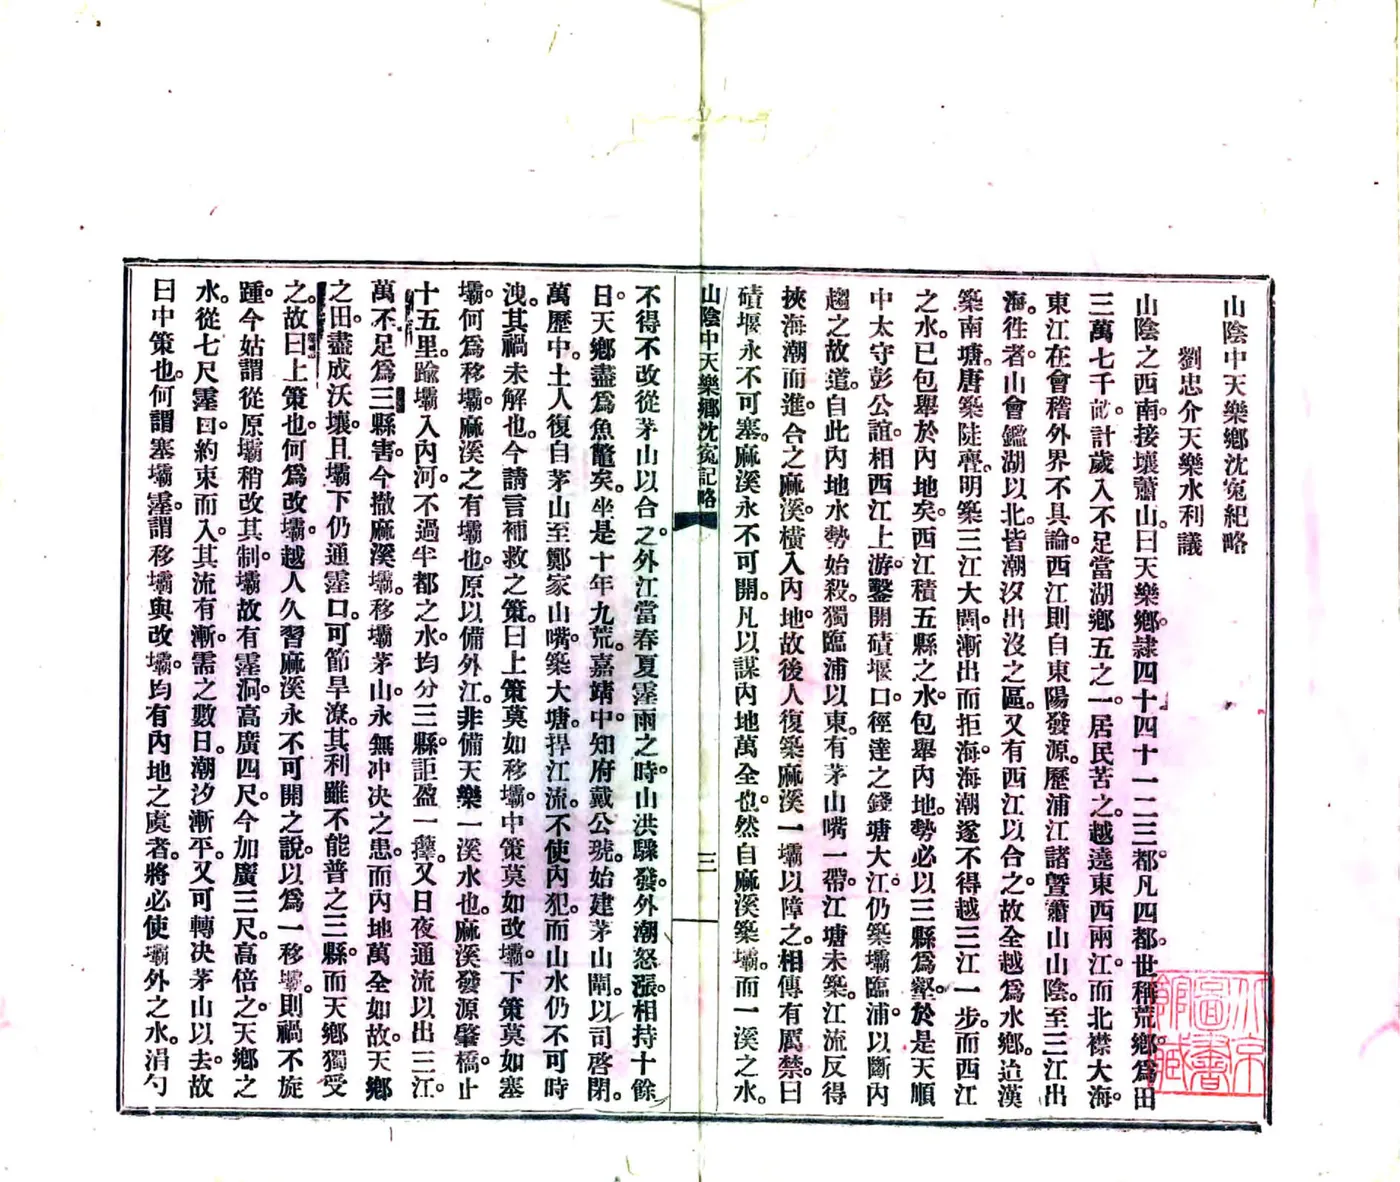 山陰中天樂鄉沈寃紀略
劉忠介天樂水利議
山陰之西南。接壤蕭山。曰天樂鄉。隷四十四十一二三都。凡四都。世稱荒鄉。爲田
三萬七千畝。計歲入不足當湖鄉五之一。居民苦之。越遶東西兩江。而北襟大海。
東江在會稽外界不具論。西江則自東陽發源。歷浦江諸曁蕭山山陰。至三江出
海。徃者。山會鑑湖以北。皆潮汐出沒之區。又有西江以合之。故全越爲水鄉。迨漢
築南塘。唐築陡亹。明築三江大閘。漸出而拒海。海潮遂不得越三江一步。而西江
之水。已包舉於內地矣。西江積五縣之水。包舉內地。勢必以三縣爲壑。於是天順
中太守彭公誼。相西江上游。鑿開磧堰口。徑達之錢塘大江。仍築壩臨浦。以斷內
趨之故道。自此內地水勢始殺。獨臨浦以東。有茅山嘴一帶。江塘未築。江流反得
挾海潮而進。合之麻溪。橫入內地。故後人復築麻溪一壩以障之。相傳有厲禁。曰
磧堰永不可塞。麻溪永不可開。凡以謀內地萬全也。然自麻溪築壩。而一溪之水。
山陰中天樂鄉沈寃記略
三
不得不改從茅山以合之。外江當春夏霪雨之時。山洪驟發。外潮怒漲。相持十餘
日。天鄉盡爲魚鼈矣。坐是十年九荒。嘉靖中。知府戴公琥。始建茅山閘。以司啓閉。
萬歷中。土人復自茅山至鄭家山嘴。築大塘。捍江流。不使內犯。而山水仍不可時
洩。其禍未解也。今請言補救之策。曰上策莫如移壩。中策莫如改壩。下策莫如塞
壩。何爲移壩。麻溪之有壩也。原以備外江。非備天樂一溪水也。麻溪發源肇橋。止
十五里。踰壩入內河。不過半都之水。均分三縣。詎盈一檠。又日夜通流。以出三江。
萬不足爲三縣害。今撤麻溪壩。移壩茅山。永無冲决之患。而內地萬全如故。天鄉
之田。盡成沃壤。且壩下仍通霪口。可節旱潦。其利雖不能普之三縣。而天鄉獨受
之。故曰上策也。何爲改壩。越人久習麻溪永不可開之說。以爲一移壩。則禍不旋
踵。今姑謂從原壩稍改其制。壩故有霪洞。高廣四尺。今加廣三尺。高倍之。天鄉之
水。從七尺霪口。約束而入。其流有漸。需之數日。潮汐漸平。又可轉决茅山以去。故
曰中策也。何謂塞壩霪。謂移壩與改壩。均有內地之虞者。將必使壩外之水。涓勺